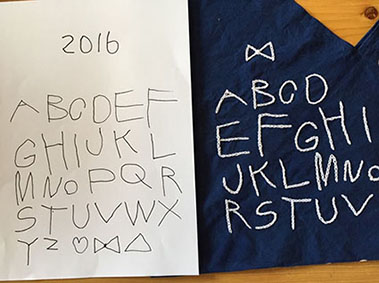 2016
ABCDEF
GHIJKL
MNOPQR
STUVWX
YZ
ABCD
EFGHI
JKLMNO
RSTUV